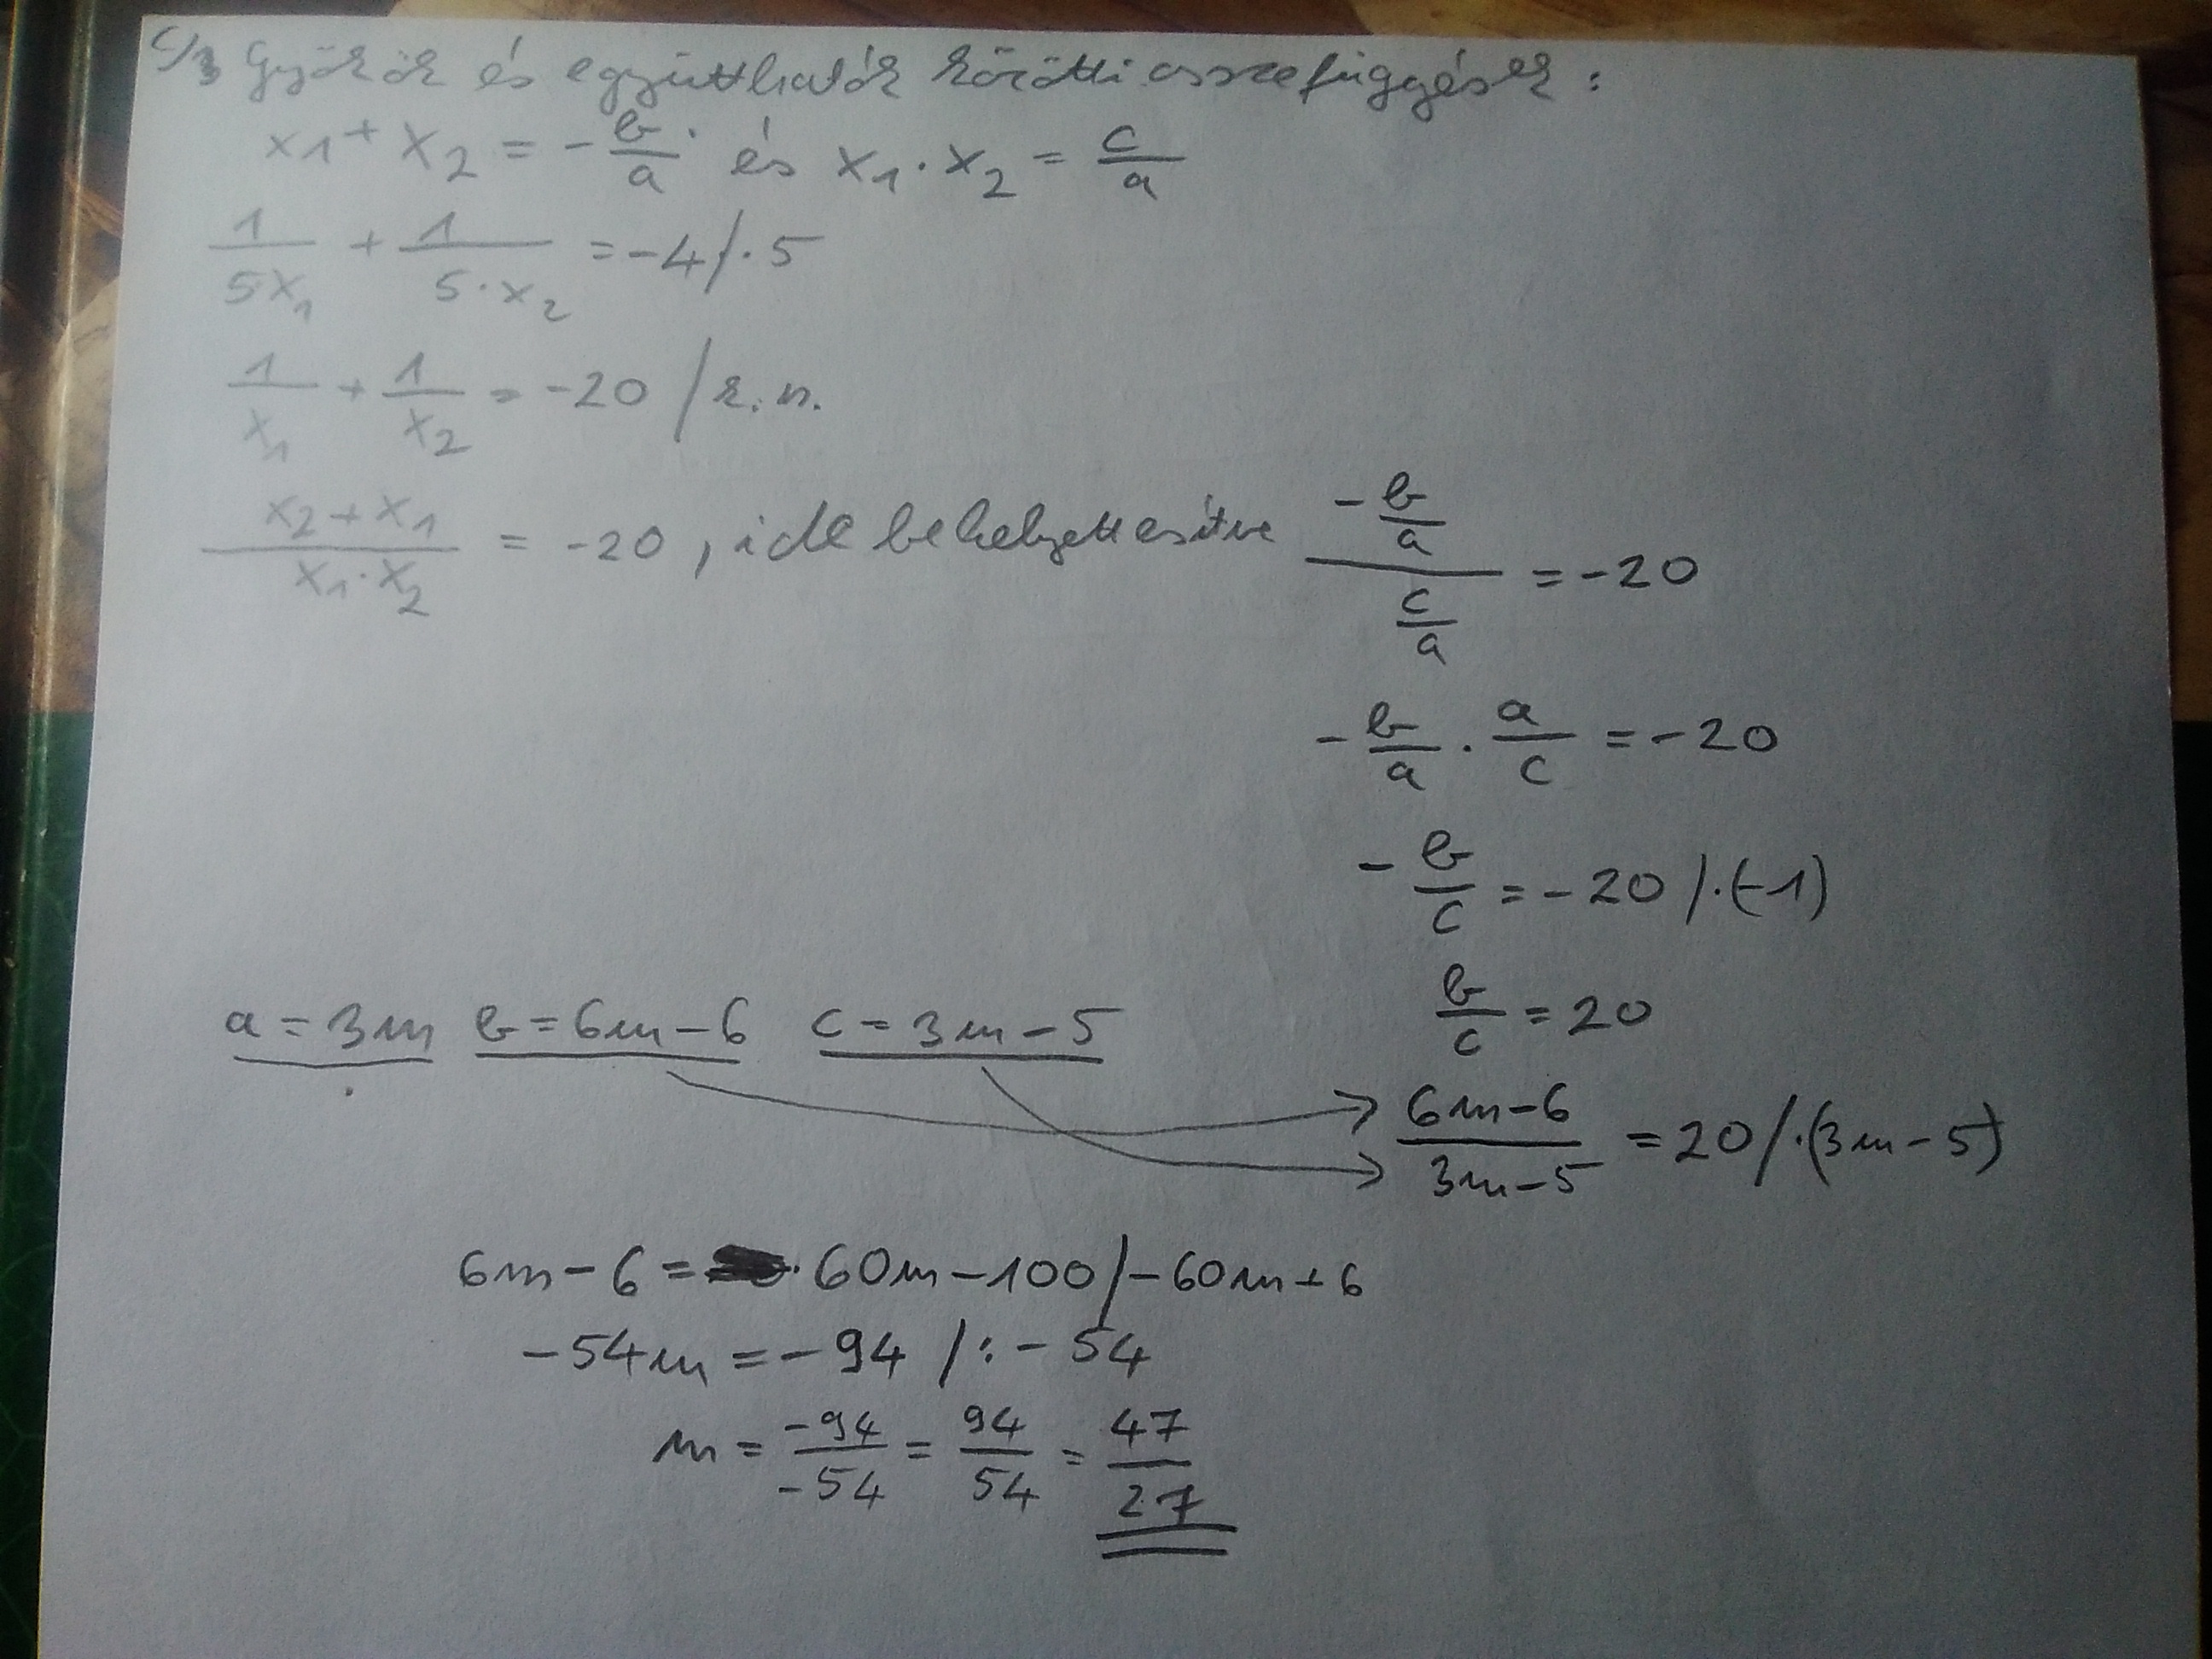 c/3 Gyökök és együtthatók közötti összefüggések:
x1 + x2 = -b/a és x1 · x2 = c/a
1/5x1 + 1/5·x2 = -4 /·5
1/x1 + 1/x2 = -20 /k.n.
x2 + x1 / x1·x2 = -20, ide behelyettesítve -b/a / c/a = -20
-b/a · a/c = -20
-b/c = -20 /·(-1)
b/c = 20
a = 3m b = 6m-6 c = 3m-5
6m-6 / 3m-5 = 20 /·(3m-5)
6m-6 = 60m-100 /-60m+6
-54m = -94 /:-54
m = -94/-54 = 94/54 = 47/27